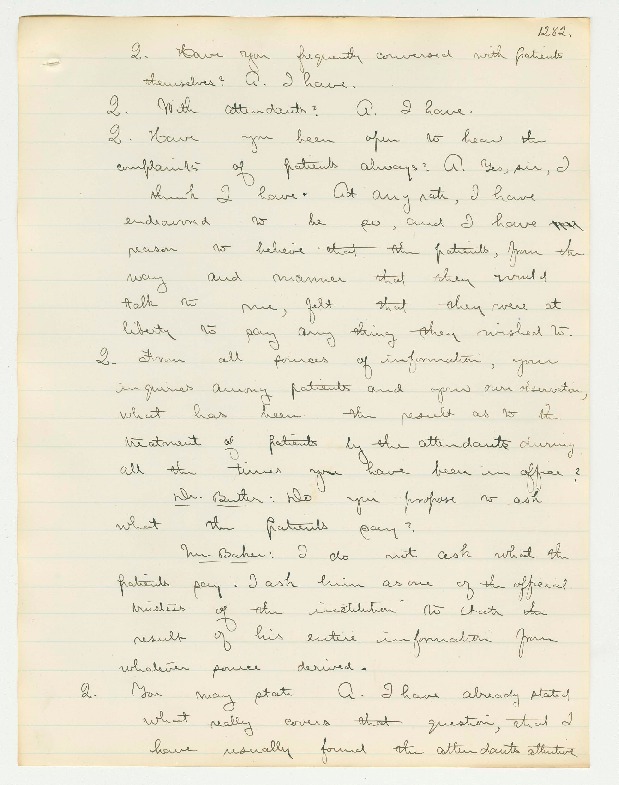 1282.
Q. Have you frequently conversed with patients
themselves? A. I have.
Q. With attendants? A. I have.
Q. Have you been open to hear the
complaints of patients always? A. Yes, sir, I
think I have. At any rate, I have
endeavored to be so, and I have
reason to believe that the patients, from the
way and manner that they would
talk to me, felt that they were at
liberty to say any thing they wished to.
Q. From all sources of information, your
inquiries among patients and your own observation,
what has been the result as to the
treatment of patients by the attendants during
all the times you have been in office?
Dr. Butler: Do you propose to ask
what the patients say?
Mr. Baker: I do not ask what the
patients say. I ask him as one of the official
trustees of the institution to state the
result of his entire information from
whatever source derived.
Q. You may state A. I have already stated
what really covers that question, that I
have usually found the attendants attentive